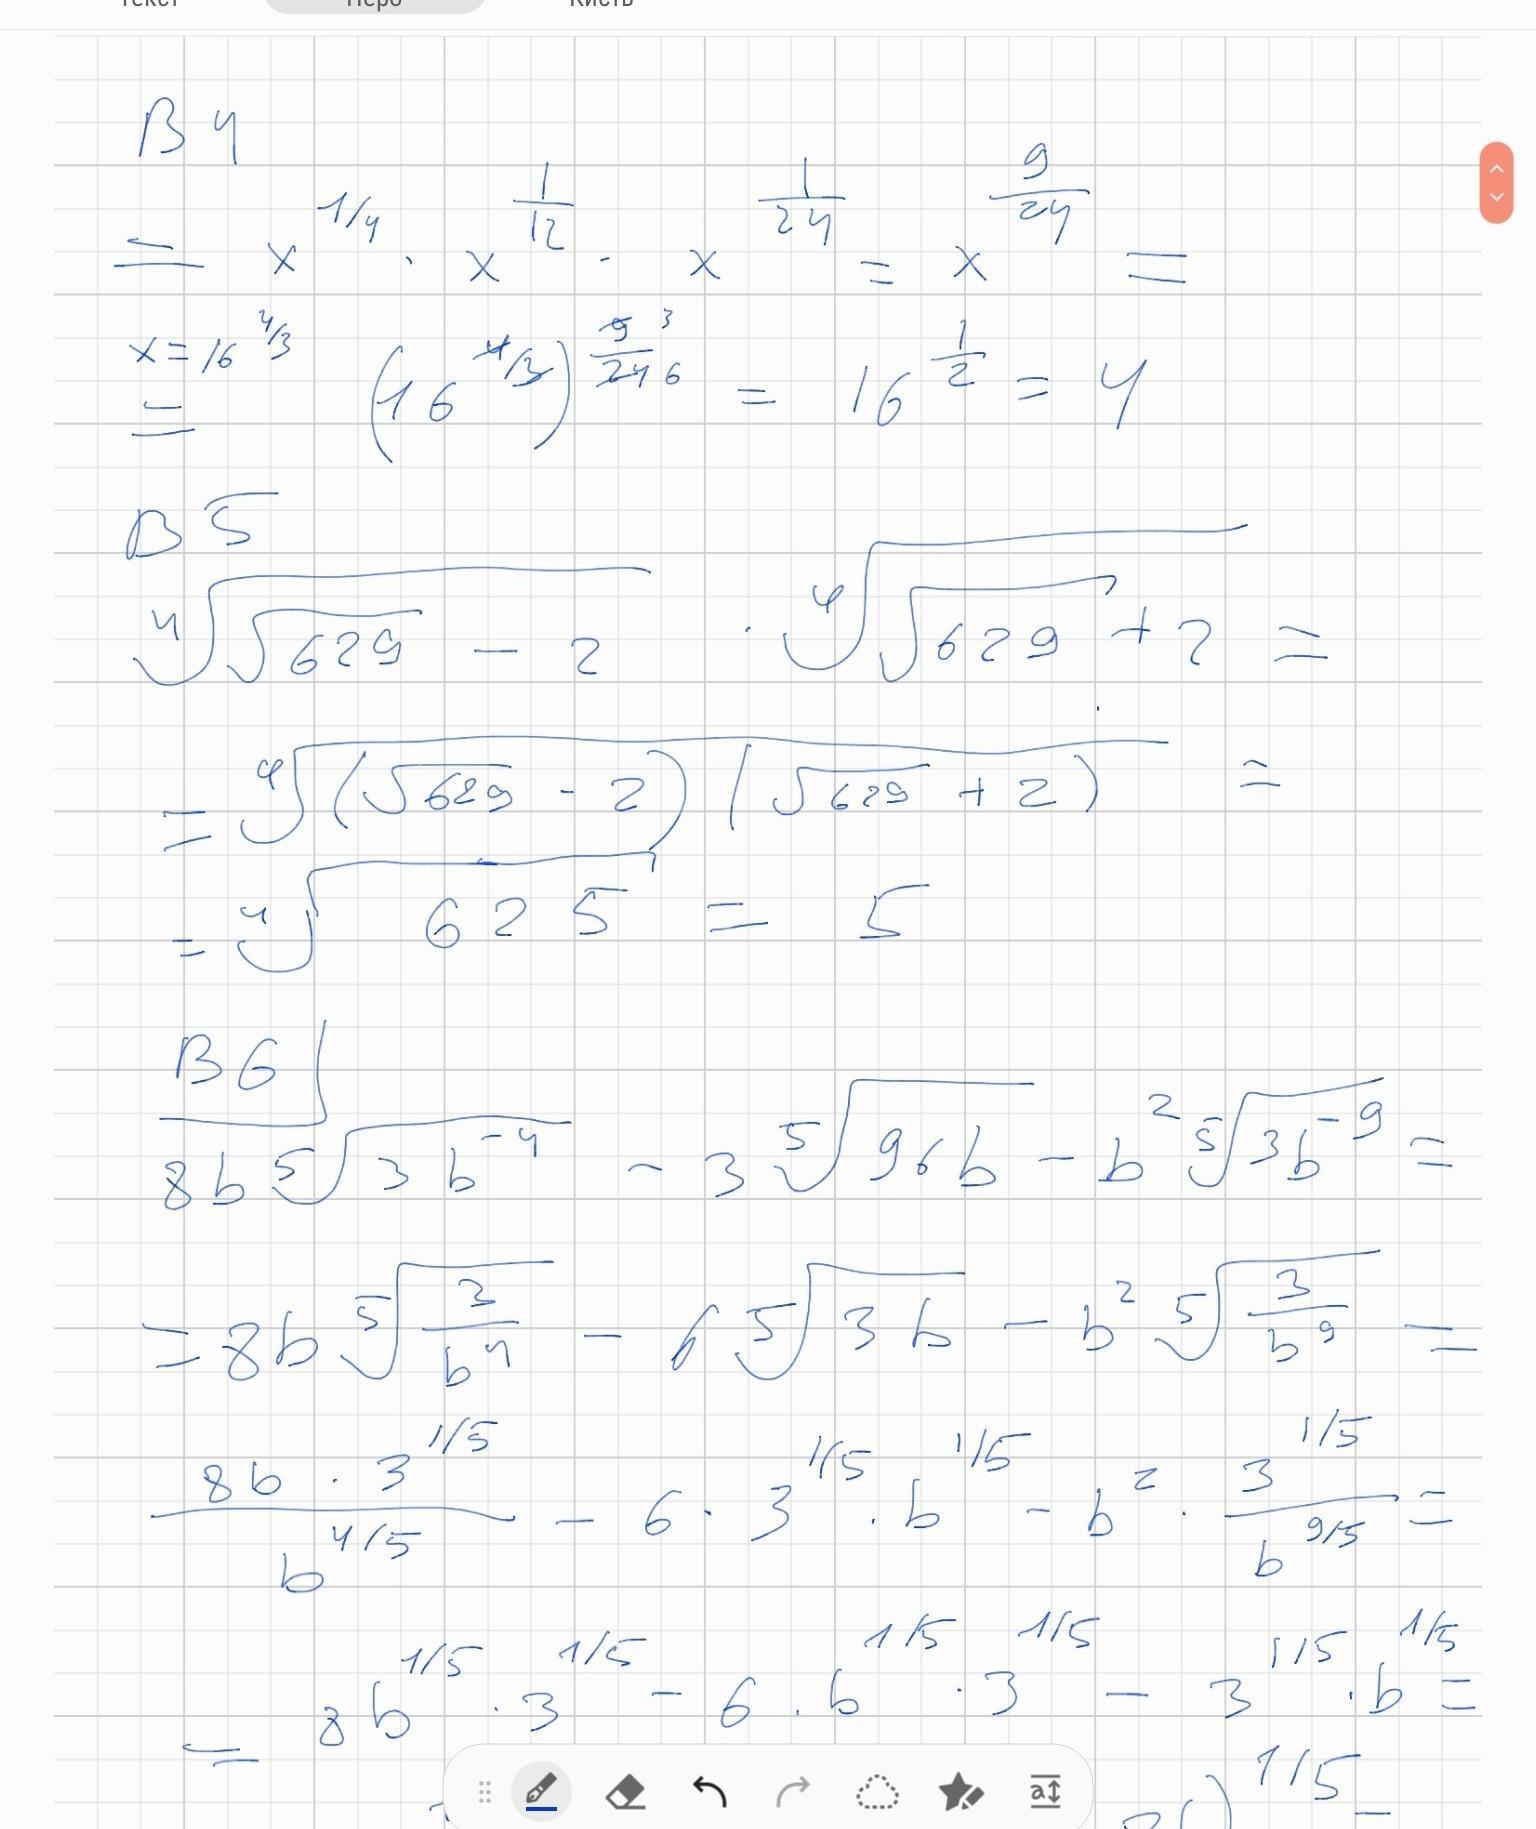 Текст Перо Кисть
B4
= x^{1/4} · x^{1/12} · x^{1/24} = x^{9/24} =
x = 16^{4/3}
= (16^{4/3})^{9/24} 3 6 = 16^{1/2} = 4
B5
⁴√(√629 - 2) · ⁴√(√629 + 2) =
= ⁴√((√629 - 2)(√629 + 2)) =
= ⁴√625 = 5
B6
8b ⁵√(3b^{-4}) - 3 ⁵√(96b) - b² ⁵√(3b^{-9}) =
= 8b ⁵√(3/b⁴) - 6 ⁵√(3b) - b² ⁵√(3/b⁹) =
(8b · 3^{1/5})/b^{4/5} - 6 · 3^{1/5} · b^{1/5} - b² · 3^{1/5}/b^{9/5} =
= 8b^{1/5} · 3^{1/5} - 6 · b^{1/5} · 3^{1/5} - 3^{1/5} · b^{1/5} =
1/5